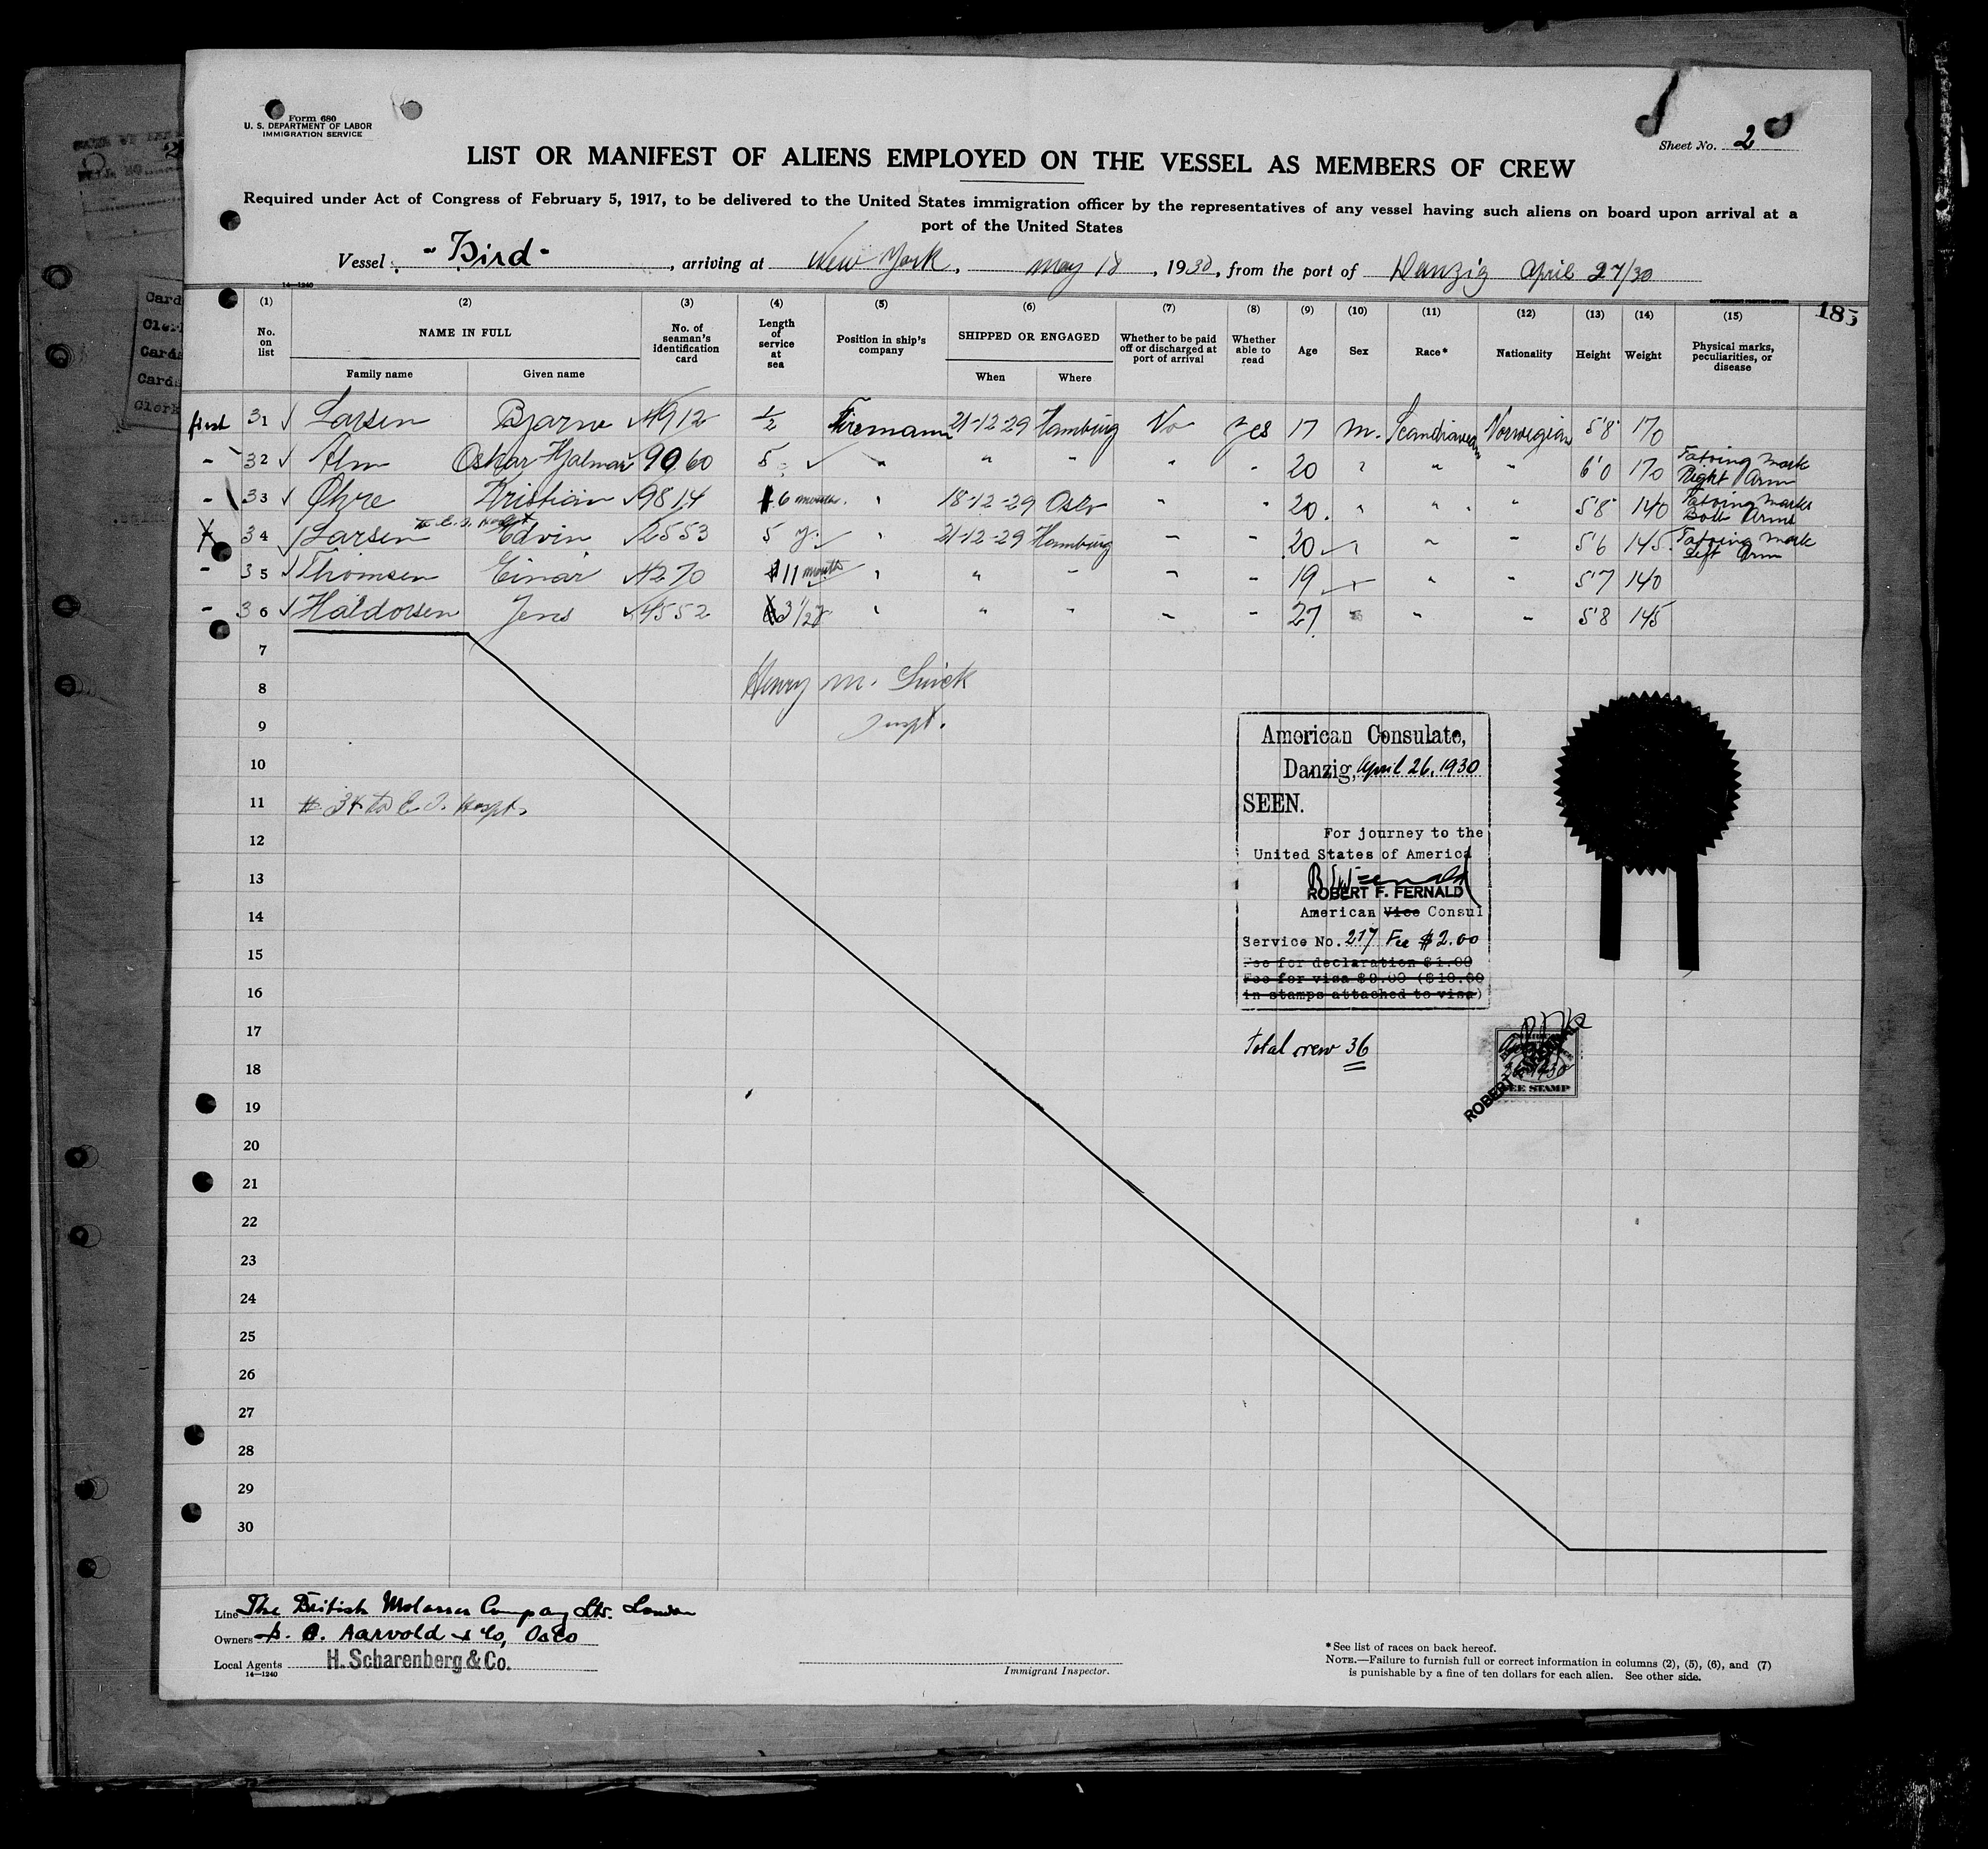 Form 680
U. S. DEPARTMENT OF LABOR
IMMIGRATION SERVICE
Sheet No. 2
LIST OR MANIFEST OF ALIENS EMPLOYED ON THE VESSEL AS MEMBERS OF CREW
Required under Act of Congress of February 5, 1917, to be delivered to the United States immigration officer by the representatives of any vessel having such aliens on board upon arrival at a
port of the United States
Vessel "Bird", arriving at New York, May 18, 1930, from the port of Danzig April 27/30
14—1240
185
(1) (2) (3) (4) (5) (6) (7) (8) (9) (10) (11) (12) (13) (14) (15)
No. on list NAME IN FULL Family name Given name No. of seaman's identification card Length of service at sea Position in ship's company SHIPPED OR ENGAGED When Where Whether to be paid off or discharged at port of arrival Whether able to read Age Sex Race* Nationality Height Weight Physical marks, peculiarities, or disease
first 31 Larsen Bjarne 4912 1/2 Firemann 21-12-29 Hamburg No Yes 17 M. Scandinavean Norwegian 5'8" 170
- 32 Alm Oskar Hjalmar 9060 5 " " " " " 20 " " " 6'0 170 Tatoing mark Right Arm
- 33 Øhre Kristian 9814 6 months " 18-12-29 Oslo " " 20. " " " 5'8" 140 Tatoing marks Both Arms
to E. I. Hospt
X 34 Larsen Edvin 2553 5 y. " 21-12-29 Hamburg " " 20 " " " 5'6 145. Tatoing mark Left Arm
- 35 Thomsen Einar 4270 11 months " " " " " 19 " " " 5'7 140
- 36 Haldorsen Jens 4552 3 1/2 y. " " " " " 27 " " " 5'8 145
7
8 Henry M.
9 Inspt.
10
11 # 34 to E. I. Hospt.
12
13
14
15
16
17
18
19
20
21
22
23
24
25
26
27
28
29
30
American Consulate,
Danzig, April 26, 1930
SEEN.
For journey to the
United States of America
ROBERT F. FERNALD
American Vice Consul
Service No. 217 Fee $2.00
Fee for declaration $1.00
Fee for visa $9.00 ($10.00
in stamps attached to visa)
Total crew 36
FEE STAMP
Line The British Molasses Company Ltd. London
Owners A. C. Aarvold & Co, Oslo
Local Agents H. Scharenberg & Co.
14—1240
Immigrant Inspector.
*See list of races on back hereof.
NOTE.—Failure to furnish full or correct information in columns (2), (5), (6), and (7)
is punishable by a fine of ten dollars for each alien. See other side.